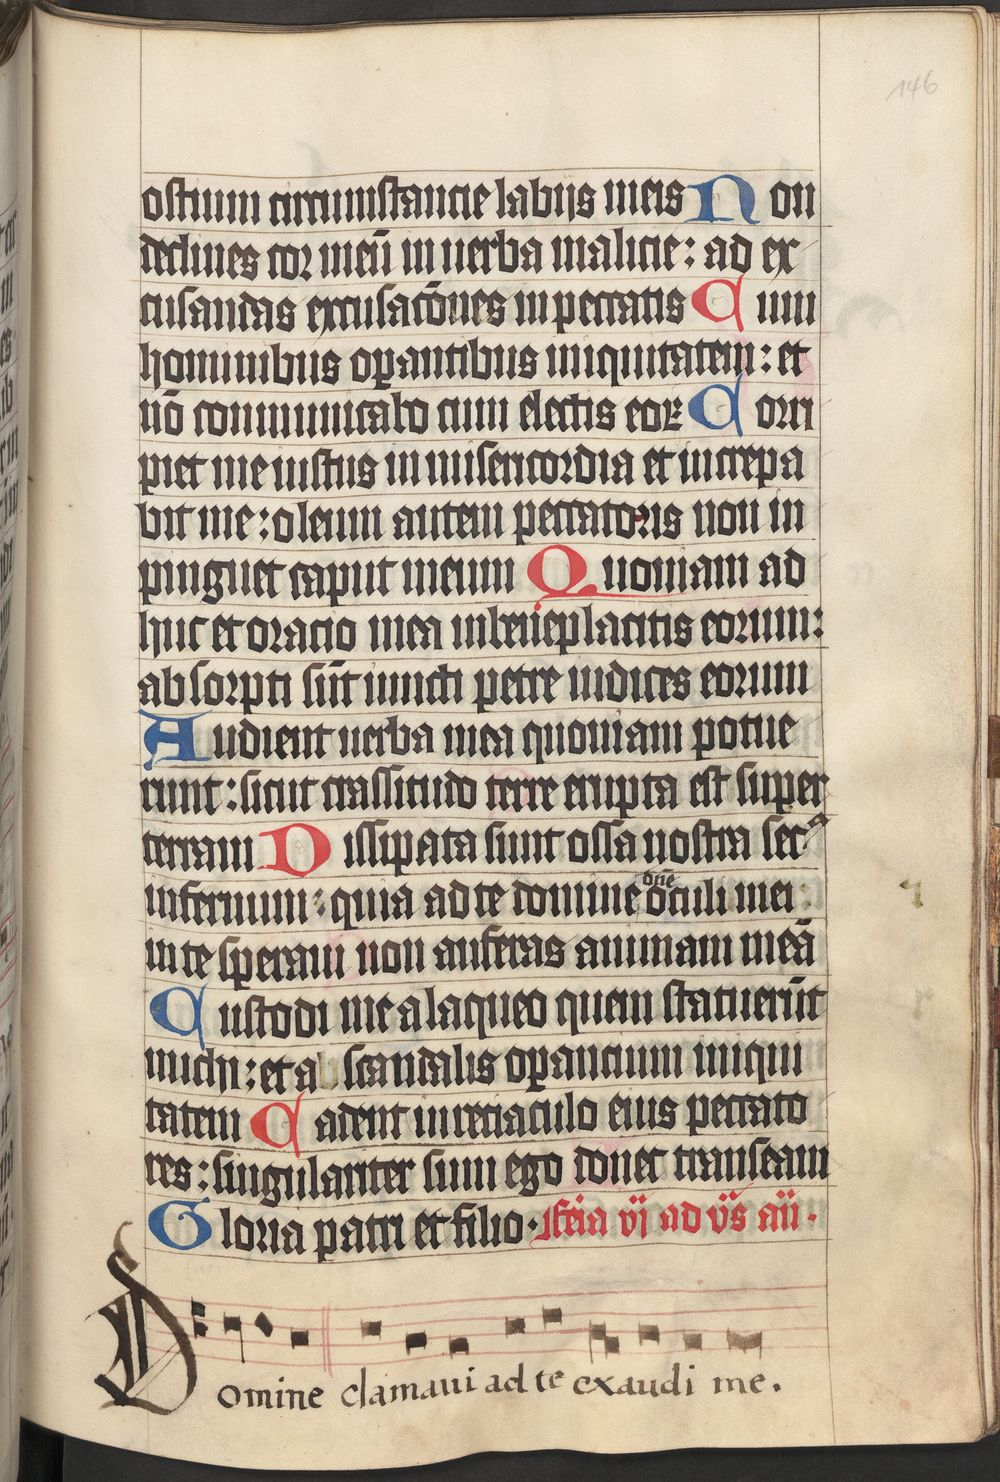 146
ostium circumstancie labijs meis Non
declines cor meū in uerba malicie: ad ex
cusandas excusacōnes in peccatis Cum
hominibus oꝑantibus iniquitatem: et
nō communicabo cum electis eoꝝ Corri
piet me iustus in misericordia et increpa
bit me: oleum autem peccatoris non in
pinguet caput meum Quoniam ad
huc et oracio mea in beneplacitis eorum:
absorpti sūt iuncti petre iudices eorum
Audient uerba mea quoniam potue
runt: sicut crassitudo terre erupta est super
terram Dissipata sunt ossa nostra sec
infernum: quia ad te domine dn̄e oculi mei
in te speraui non auferas animam meā
Custodi me a laqueo quem statuerūt
michi: et a scandalis oꝑancium iniqui
tatem Cadent in reciaculo eius peccato
res: singulariter sum ego donec transeam
Gloria patri et filio. fēia vj ad vṡ̄ añ.
Domine clamaui ad te exaudi me.